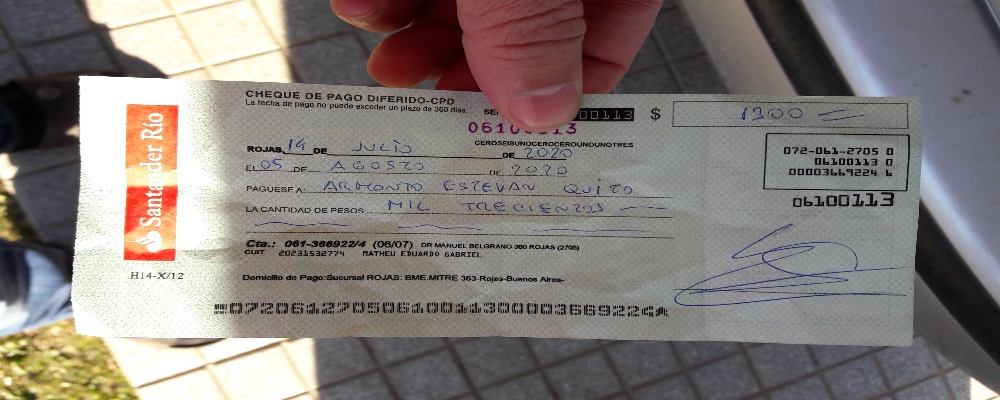 CHEQUE DE PAGO DIFERIDO-CPD
La fecha de pago no puede exceder un plazo de 360 dias.
00113 $ 1300
06100113
CEROSEISUNOCEROCEROUNOUNOTRES
ROJAS, 14 DE JULIO DE 2020
EL 05 DE AGOSTO DE 2020
PAGUESE A: ARMONTO ESTEVAN QUITO
LA CANTIDAD DE PESOS: MIL TRECIENTOS
072-061-2705 0
06100113 0
00003669224 6
06100113
Santander Río
H14-X/12
Cta.: 061-366922/4 (06/07) DR MANUEL BELGRANO 360 ROJAS (2705)
CUIT 20231532774 MATHEU EDUARDO GABRIEL
Domicilio de Pago:Sucursal ROJAS: BME.MITRE 363-Rojas-Buenos Aires-
07206127050610011300003669224